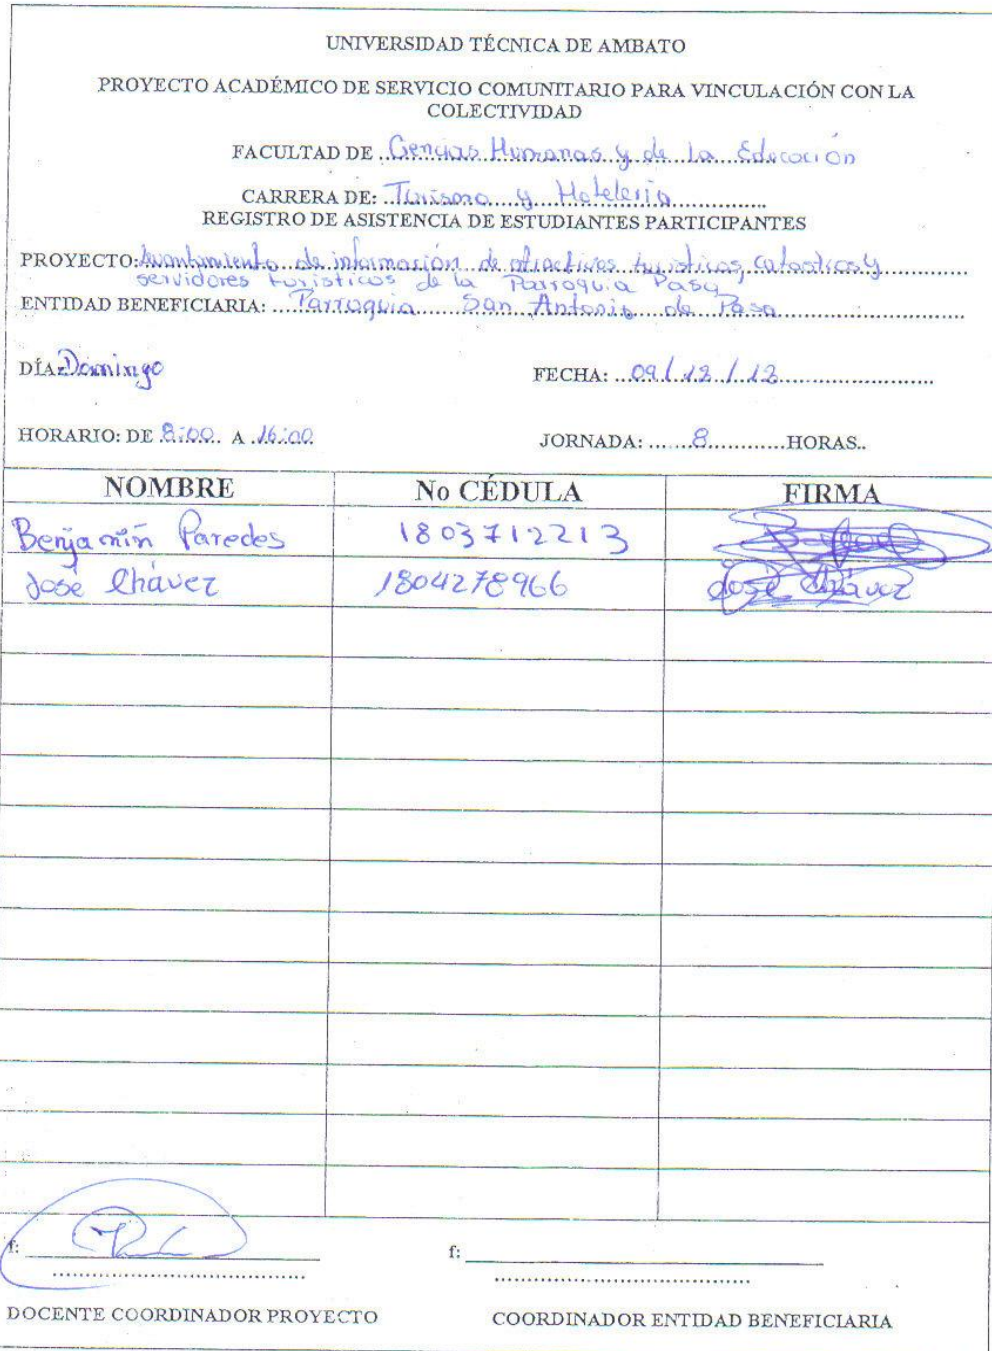 UNIVERSIDAD TÉCNICA DE AMBATO
PROYECTO ACADÉMICO DE SERVICIO COMUNITARIO PARA VINCULACIÓN CON LA
COLECTIVIDAD
FACULTAD DE Ciencias Humanas y de la Educación
CARRERA DE: Turismo y Hotelería
REGISTRO DE ASISTENCIA DE ESTUDIANTES PARTICIPANTES
PROYECTO: Levantamiento de información de atractivos turísticos, catastros y
servidores turísticos de la Parroquia Pasa
ENTIDAD BENEFICIARIA: Parroquia San Antonio de Pasa
DÍA: Domingo FECHA: 09/12/12
HORARIO: DE 8:00 A 16:00 JORNADA: 8 HORAS..
NOMBRE No CÉDULA FIRMA
Benjamín Paredes 1803712213
José Chávez 1804278966 José Chávez
f: f:
DOCENTE COORDINADOR PROYECTO COORDINADOR ENTIDAD BENEFICIARIA